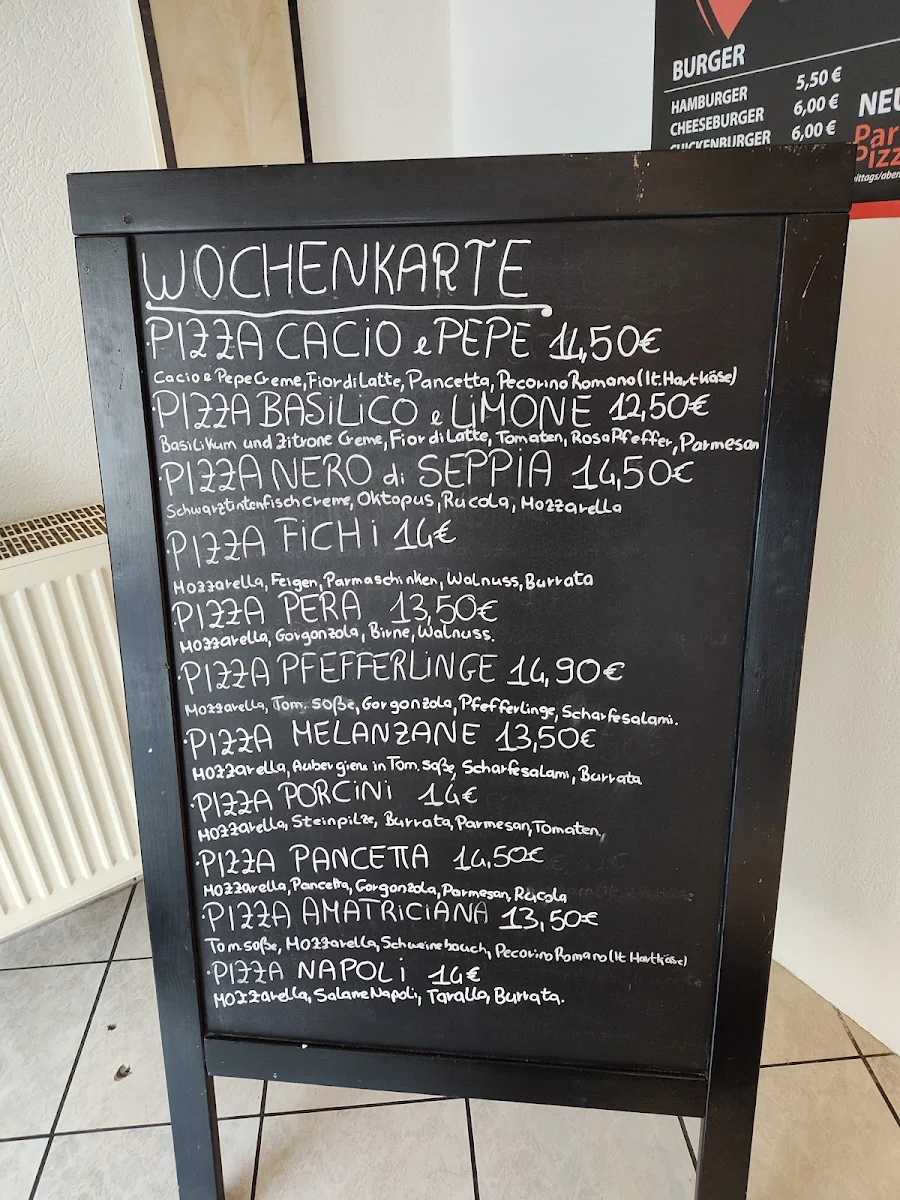 BURGER
HAMBURGER 5,50 €
CHEESEBURGER 6,00 €
CHICKENBURGER 6,00 €
NEU
Par
Pizz
WOCHENKARTE
PIZZA CACIO e PEPE 14,50€
Cacio e Pepe Creme, Fior di Latte, Pancetta, Pecorino Romano (It. Hartkäse)
PIZZA BASILICO e LIMONE 12,50€
Basilikum und Zitrone Creme, Fior di Latte, Tomaten, Rosa Pfeffer, Parmesan
PIZZA NERO di SEPPIA 14,50€
Schwarztintenfischcreme, Oktopus, Rucola, Mozzarella
PIZZA FICHI 14€
Mozzarella, Feigen, Parmaschinken, Walnuss, Burrata
PIZZA PERA 13,50€
Mozzarella, Gorgonzola, Birne, Walnuss.
PIZZA PFEFFERLINGE 14,90€
Mozzarella, Tom. soße, Gorgonzola, Pfefferlinge, Scharfesalami.
PIZZA MELANZANE 13,50€
Mozzarella, Aubergiene in Tom. soße, Scharfesalami, Burrata
PIZZA PORCINI 14€
Mozzarella, Steinpilze, Burrata, Parmesan, Tomaten.
PIZZA PANCETTA 14,50€
Mozzarella, Pancetta, Gorgonzola, Parmesan, Rucola
PIZZA AMATRICIANA 13,50€
Tom. soße, Mozzarella, Schweinebauch, Pecorino Romano (It Hartkäse)
PIZZA NAPOLI 14€
Mozzarella, Salame Napoli, Tarallo, Burrata.